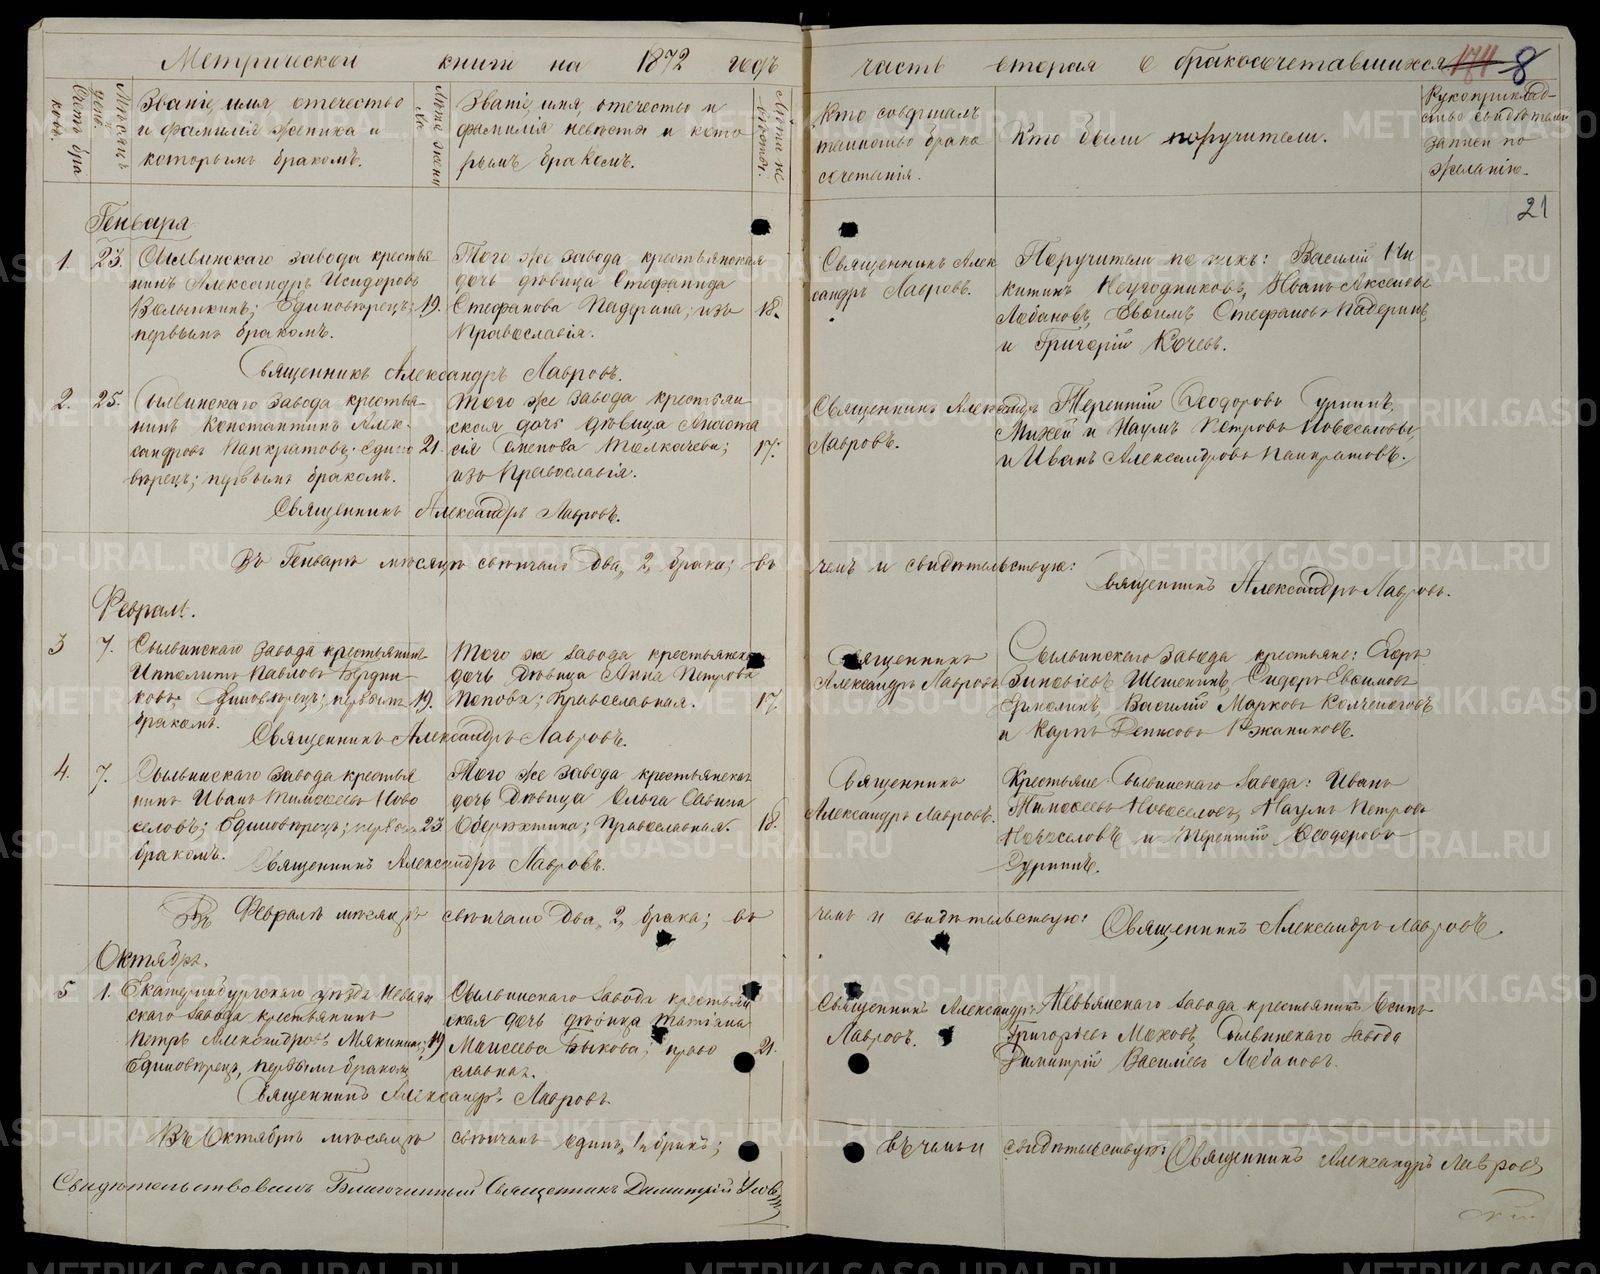 Метрической книги на 1872 годъ
часть вторая о бракосочетавшихся 8
Счетъ браковъ.
Мѣсяцъ и день.
Званіе, имя, отечество
и фамилія жениха и
которымъ бракомъ.
Лѣта жениха
Званіе, имя, отечество и
фамилія невѣсты и кото
рымъ бракомъ.
Лѣта невѣсты.
Кто совершалъ
таинство брако
сочетанія.
Кто были поручители.
Рукоприклад-
ство свидѣтелей
записи по
желанію.
21
Генваря
1. 23.
Сылвинскаго завода крестья
нинъ Александръ Исидоровъ
Волынкинъ; Единовѣрецъ; 19.
первымъ бракомъ.
Того же завода крестьянская
дочь дѣвица Стефанида
Стефанова Падерина; изъ 18.
Православія.
Священникъ Алек
сандръ Лавровъ.
Поручители по нихъ: Василій Ни
китинъ Неугодниковъ, Иванъ Аксеновъ
Лобановъ, Евсимъ Стефановъ Падеринъ,
и Григорій Кочевъ.
Священникъ Александръ Лавровъ.
2. 25.
Сылвинскаго завода крестья-
нинъ Константинъ Алек-
сандровъ Панкратовъ; едино 21.
вѣрецъ; первымъ бракомъ.
Того же завода крестьян
ская дочь дѣвица Анаста
сія Толкачева; 17.
изъ Православія.
Священникъ Александръ
Лавровъ.
Терентій Ѳеодоровъ Суринъ,
Михей и Наумъ Петровы Новоселовы,
и Иванъ Александровъ Панкратовъ.
Священникъ Александръ Лавровъ.
Въ Генварѣ мѣсяцѣ свѣнчано два, 2, брака; въ
чемъ и свидѣтельствую: Священникъ Александръ Лавровъ.
Февраля.
3 7.
Сылвинскаго завода крестьянинъ
Ипполитъ Павловъ Бердни-
ковъ; Единовѣрецъ; первымъ 19.
бракомъ.
Того же завода крестьянская
дочь дѣвица Анна Петрова
Попова; Православная. 17.
Священникъ
Александръ Лавровъ.
Сылвинскаго завода крестьяне: Егоръ
Зиновіевъ Шешенинъ, Сидоръ Евсимовъ
Ермолинъ, Василій Марковъ Колченоговъ
и Карпъ Денисовъ
Священникъ Александръ Лавровъ.
4. 7.
Сылвинскаго завода крестья
нинъ Иванъ Тимоѳеевъ Ново
селовъ; Единовѣрецъ; первымъ 23
бракомъ.
Того же завода крестьянская
дочь дѣвица Ольга Савина
Оберюхтина; Православная. 18.
Священникъ
Александръ Лавровъ.
Крестьяне Сылвинскаго завода: Иванъ
Тимоѳеевъ Новоселовъ, Наумъ Петровъ
Новоселовъ и Терентій Ѳеодоровъ
Суринъ.
Священникъ Александръ Лавровъ.
Въ Февралѣ мѣсяцѣ свѣнчано два, 2, брака; въ
чемъ и свидѣтельствую: Священникъ Александръ Лавровъ.
Октябрь.
5 1.
Екатеринбургскаго уѣзда Невьян
скаго завода крестьянинъ
Петръ Александровъ Мякининъ; 19
Единовѣрецъ, первымъ бракомъ
Сылвинскаго завода крестьян
ская дочь дѣвица Татіана
Моисеева Быкова; право 21.
славная.
Священникъ Александръ
Лавровъ.
Невьянскаго завода крестьянинъ Осипъ
Григорьевъ Моховъ, Сылвинскаго завода
Димитрій Василіевъ Лобановъ.
Священникъ Александръ Лавровъ
Въ Октябрѣ мѣсяцѣ свѣнчанъ одинъ, 1, бракъ;
въ чемъ и свидѣтельствую: Священникъ Александръ Лавровъ
Свидѣтельствовалъ Благочинный Священникъ Димитрій
METRIKI.GASO-URAL.RU